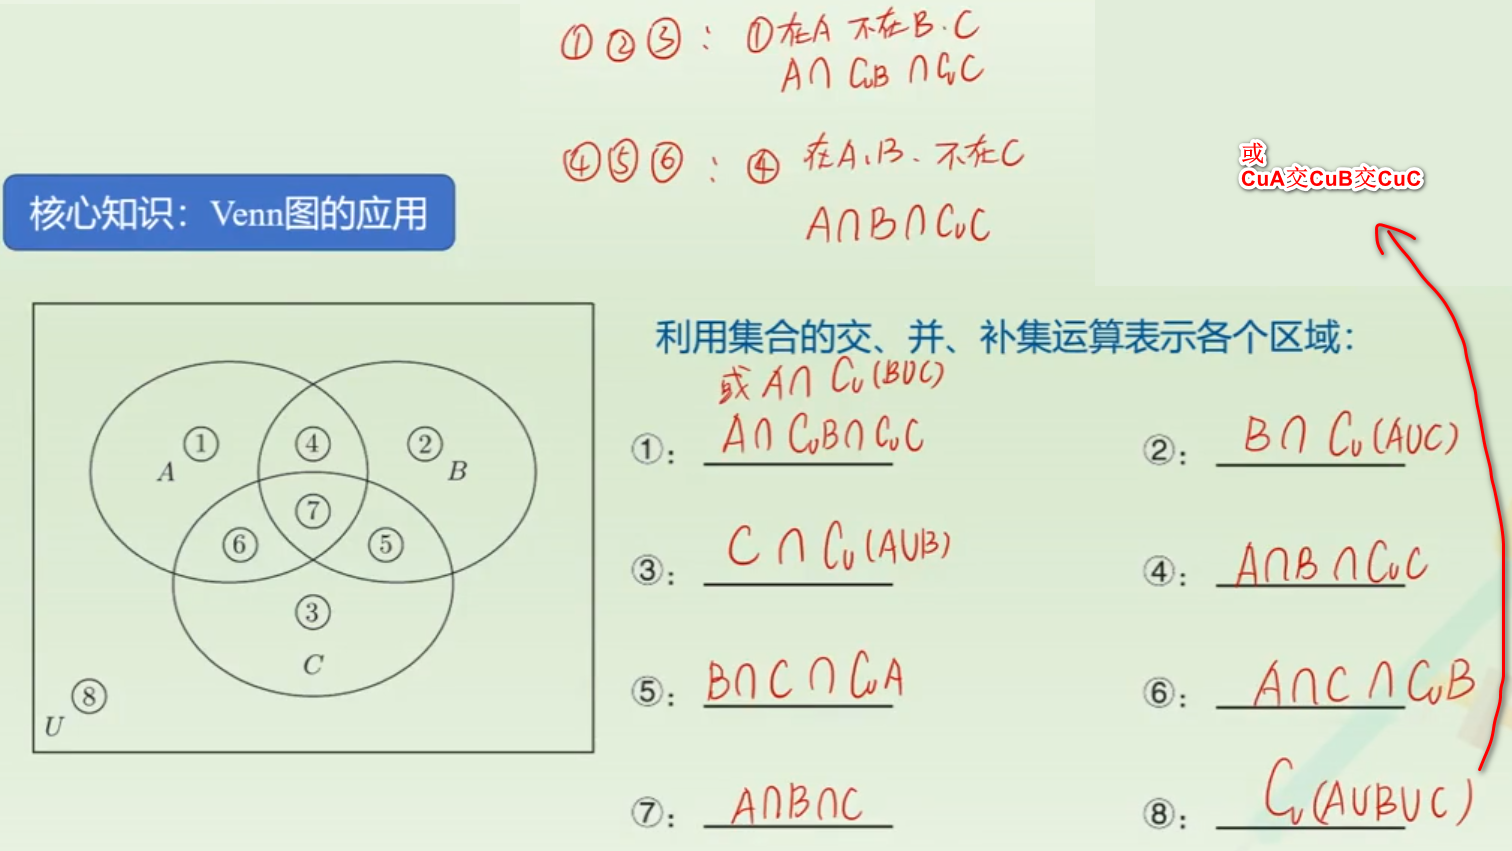 ①②③：①在A 不在B.C
A∩ CuB ∩CuC
④⑤⑥：④ 在A、B、不在C
A∩B∩CuC
或
CuA交CuB交CuC
核心知识：Venn图的应用
利用集合的交、并、补集运算表示各个区域：
或 A∩ Cu(B∪C)
①： A∩ CuB∩ CuC
②： B∩ Cu(A∪C)
③： C ∩ Cu(A∪B)
④： A∩B ∩CuC
⑤： B∩C ∩ CuA
⑥： A∩C ∩CuB
⑦： A∩B∩C
⑧： Cu(A∪B∪C)
① ④ ②
A B
⑦
⑥ ⑤
③
C
⑧
U